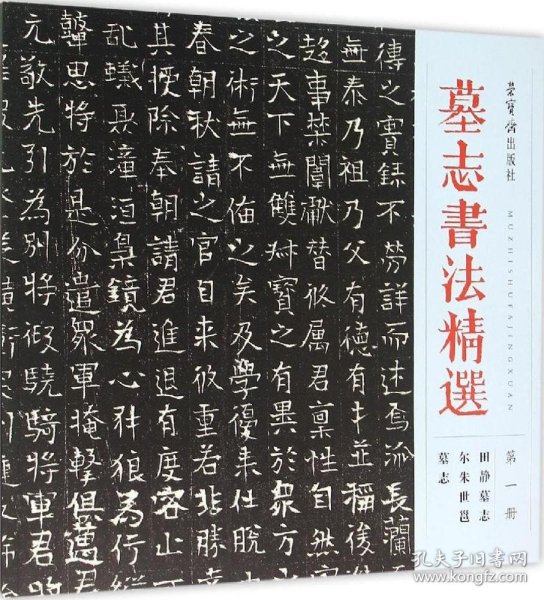 荣宝斋出版社
MUZHISHUFAJINGXUAN
第一册
墓志書法精選
田静墓志
尔朱世邕
墓志
傳之實錄不勞詳而述焉派長蘭
無泰乃祖乃父有德有才並稱俊
趍事禁闈獻替攸属君稟性自然
之天下無雙 寶之有異於眾方
之術無俻之矣及學優来仕脱
春朝狀請之官自来攸重若非勝
其挭除奉朝請君進退有度容止
乱蟻聚潼洹梟鏡為心犲狼為行
思將於是分遣眾軍掩擊俱邁君
元敬先引為別將假驍騎將軍君
孔夫子旧书网
kongfz.com